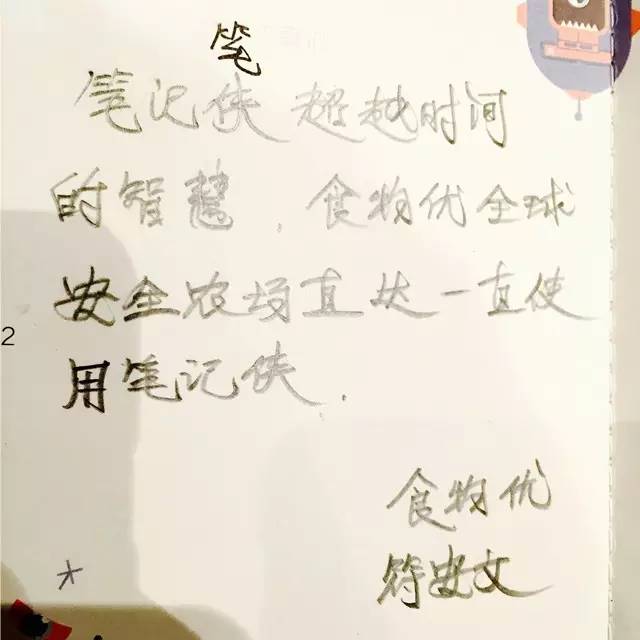 笔
笔记侠 超越时间
的智慧. 食物优全球
安全农场直达一直使
2
用笔记侠.
食物优
符
文